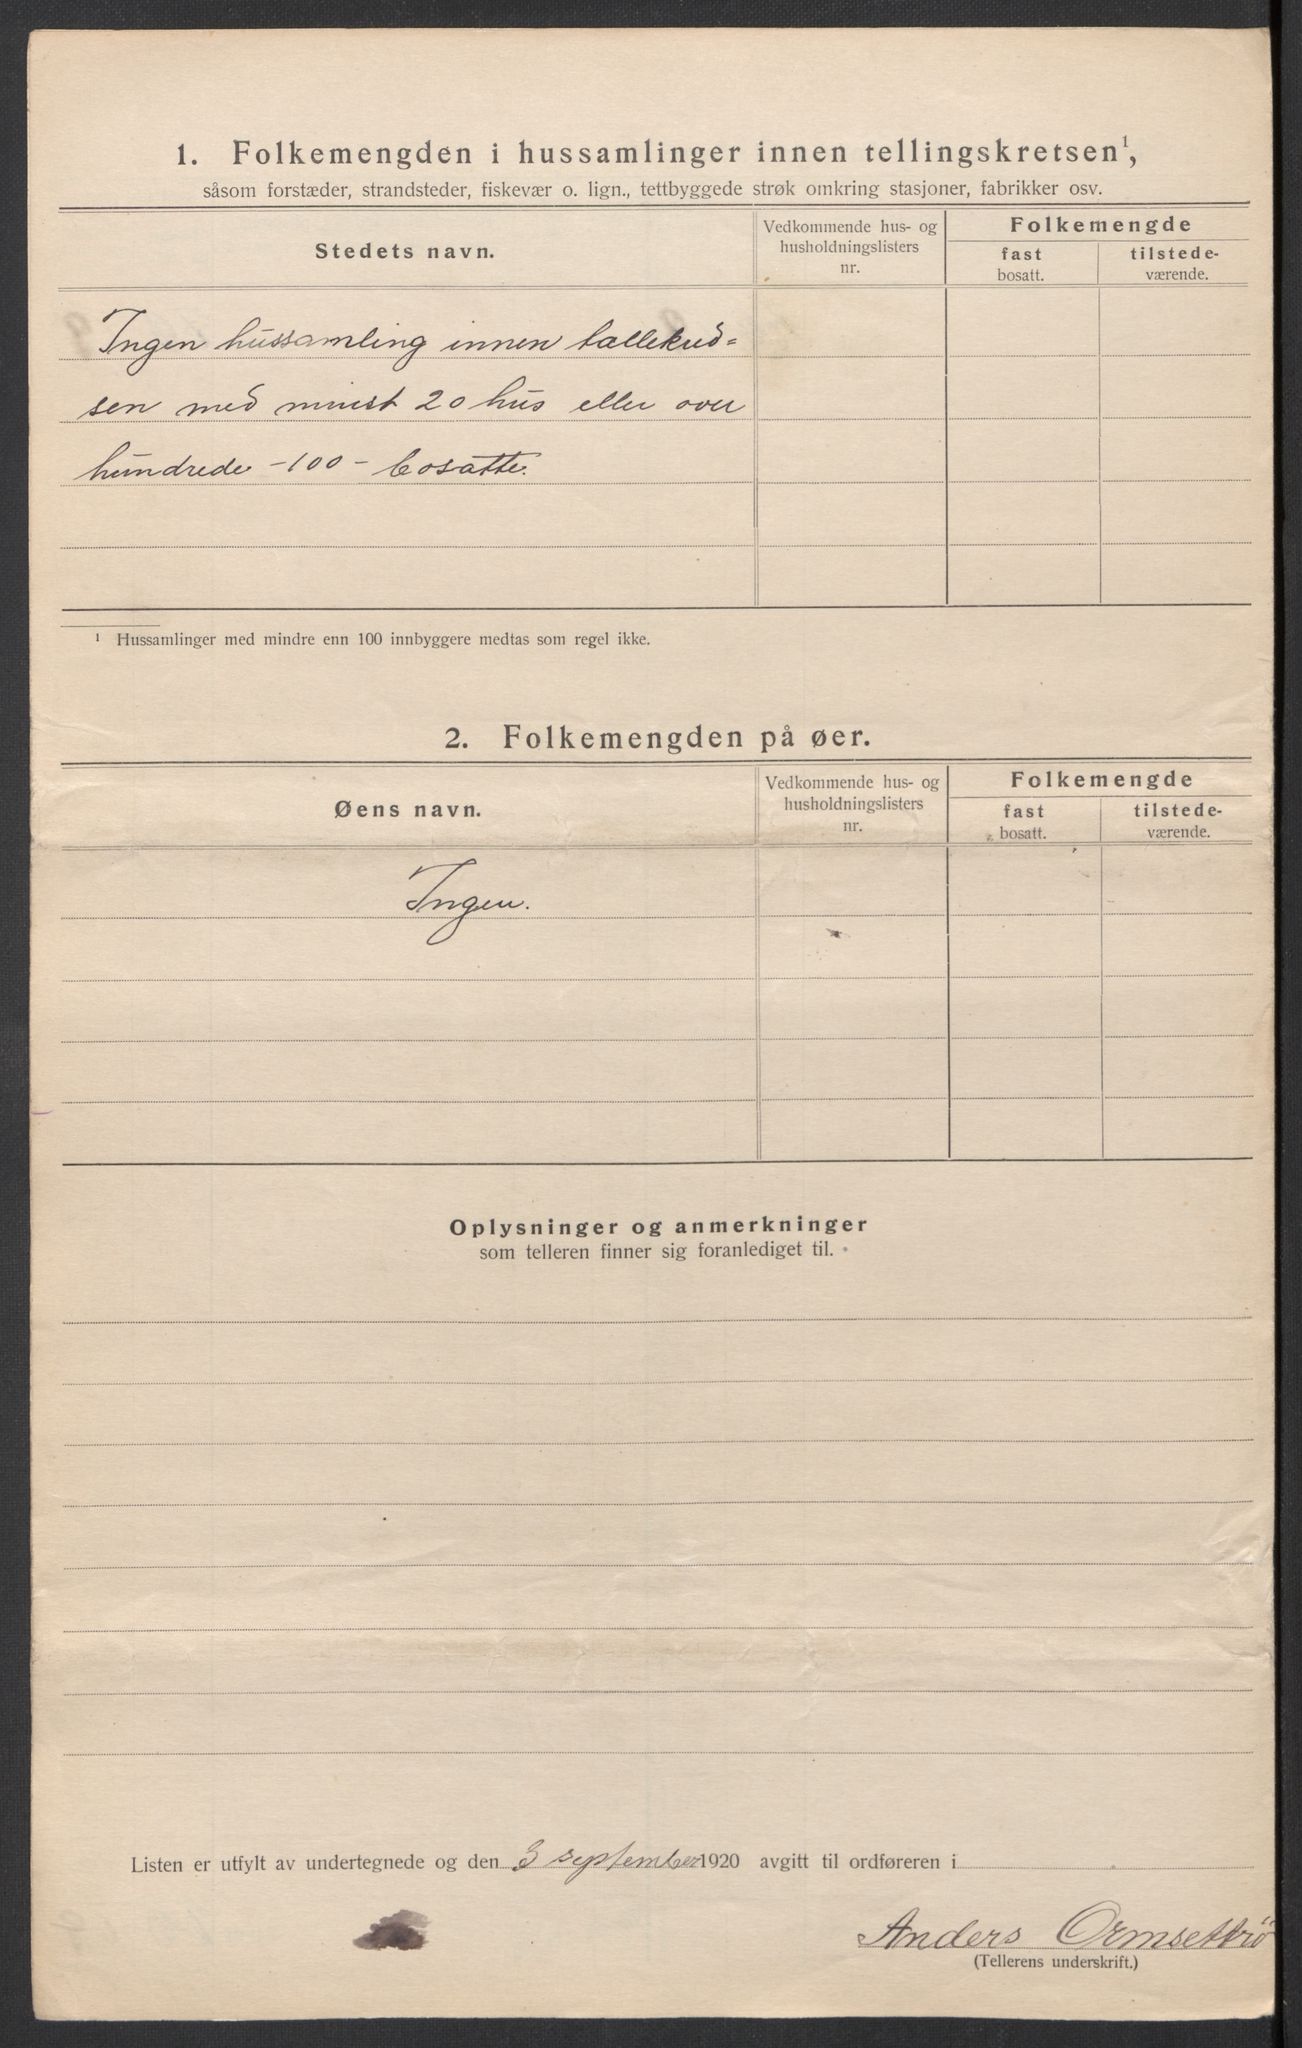 1. Folkemengden i hussamlinger innen tellingskretsen¹,
såsom forstæder, strandsteder, fiskevær o. lign., tettbyggede strøk omkring stasjoner, fabrikker osv.
Stedets navn.
Vedkommende hus- og
husholdningslisters
nr.
Folkemengde
fast
bosatt.
tilstede-
værende.
Ingen hussamling innen
sen med minst 20 hus eller over
hundrede -100- bosatte.
¹ Hussamlinger med mindre enn 100 innbyggere medtas som regel ikke.
2. Folkemengden på øer.
Øens navn.
Vedkommende hus- og
husholdningslisters
nr.
Folkemengde
fast
bosatt.
tilstede-
værende.
Ingen.
Oplysninger og anmerkninger
som telleren finner sig foranlediget til.
Listen er utfylt av undertegnede og den 3 september 1920 avgitt til ordføreren i
Anders Ormsettrö
(Tellerens underskrift.)